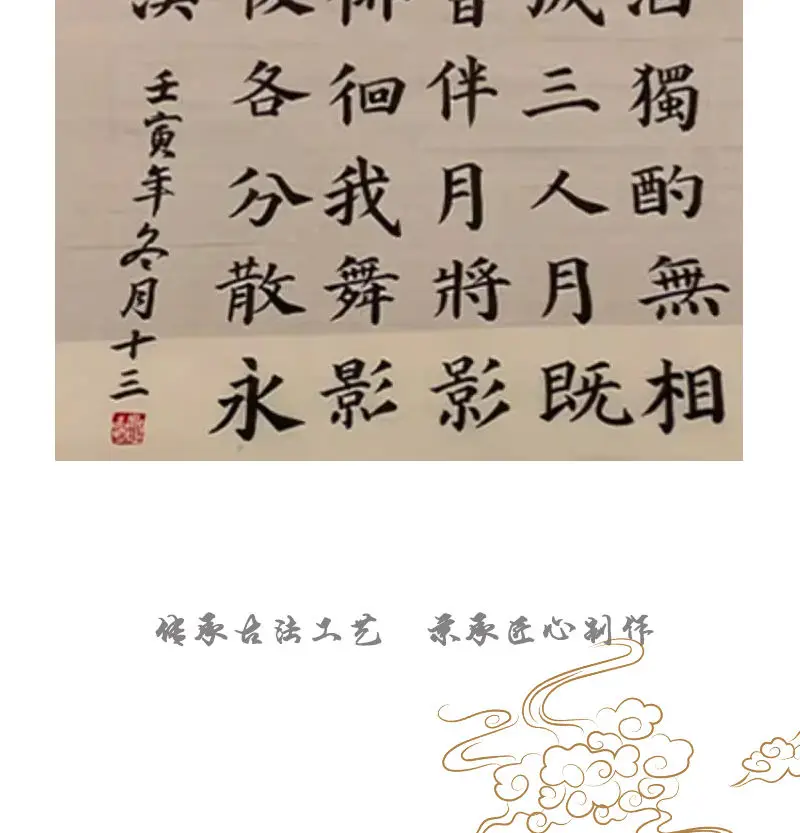 獨酌無相
三人月既
伴月將影
徊我舞影
各分散永
壬寅年冬月十三
传承古法工艺 秉承匠心制作